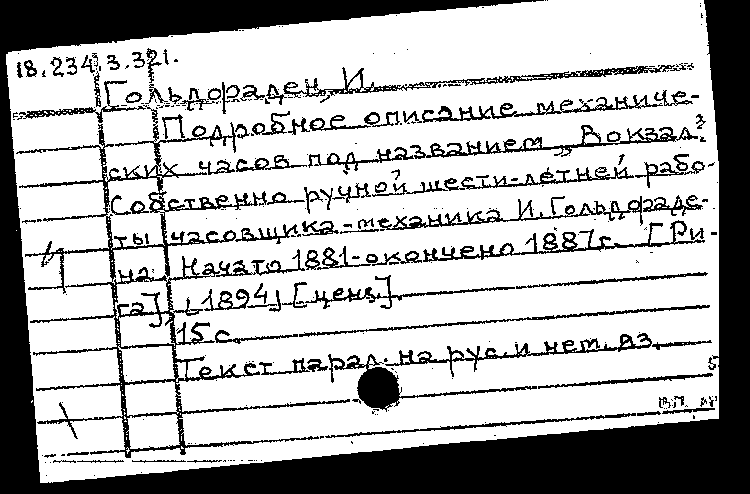 18.234.3.321.
Гольдораден, И.
Подробное описание механиче-
ских часов под названием „Вокзал”
Собственно ручной шести-летней рабо-
ты часовщика-механика И. Гольдораде-
на. Начато 1881-окончено 1887г. [Ри-
га], 1894 [ценз.].
15 с.
Текст парал. на рус. и нем. яз.
5